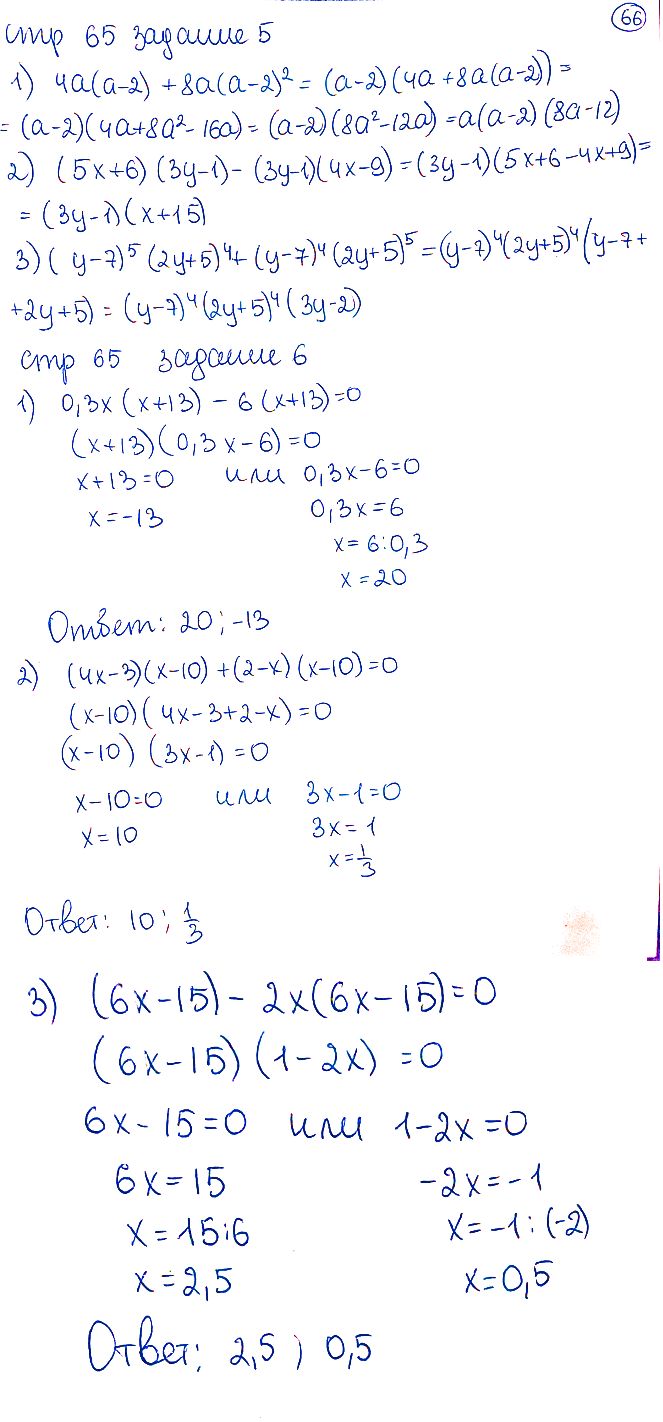 66
стр 65 задание 5
1) 4a(a-2) + 8a(a-2)² = (a-2)(4a+8a(a-2)) =
= (a-2)(4a+8a²-16a) = (a-2)(8a²-12a) = a(a-2)(8a-12)
2) (5x+6)(3y-1) - (3y-1)(4x-9) = (3y-1)(5x+6-4x+9) =
= (3y-1)(x+15)
3) (y-7)⁵(2y+5)⁴ + (y-7)⁴(2y+5)⁵ = (y-7)⁴(2y+5)⁴(y-7+
+2y+5) = (y-7)⁴(2y+5)⁴(3y-2)
стр 65 задание 6
1) 0,3x(x+13) - 6(x+13) = 0
(x+13)(0,3x-6) = 0
x+13=0 или 0,3x-6=0
x=-13 0,3x=6
x=6:0,3
x=20
Ответ: 20; -13
2) (4x-3)(x-10)+(2-x)(x-10)=0
(x-10)(4x-3+2-x)=0
(x-10)(3x-1)=0
x-10=0 или 3x-1=0
x=10 3x=1
x=1/3
Ответ: 10; 1/3
3) (6x-15) - 2x(6x-15)=0
(6x-15)(1-2x)=0
6x-15=0 или 1-2x=0
6x=15 -2x=-1
x=15:6 x=-1:(-2)
x=2,5 x=0,5
Ответ: 2,5; 0,5